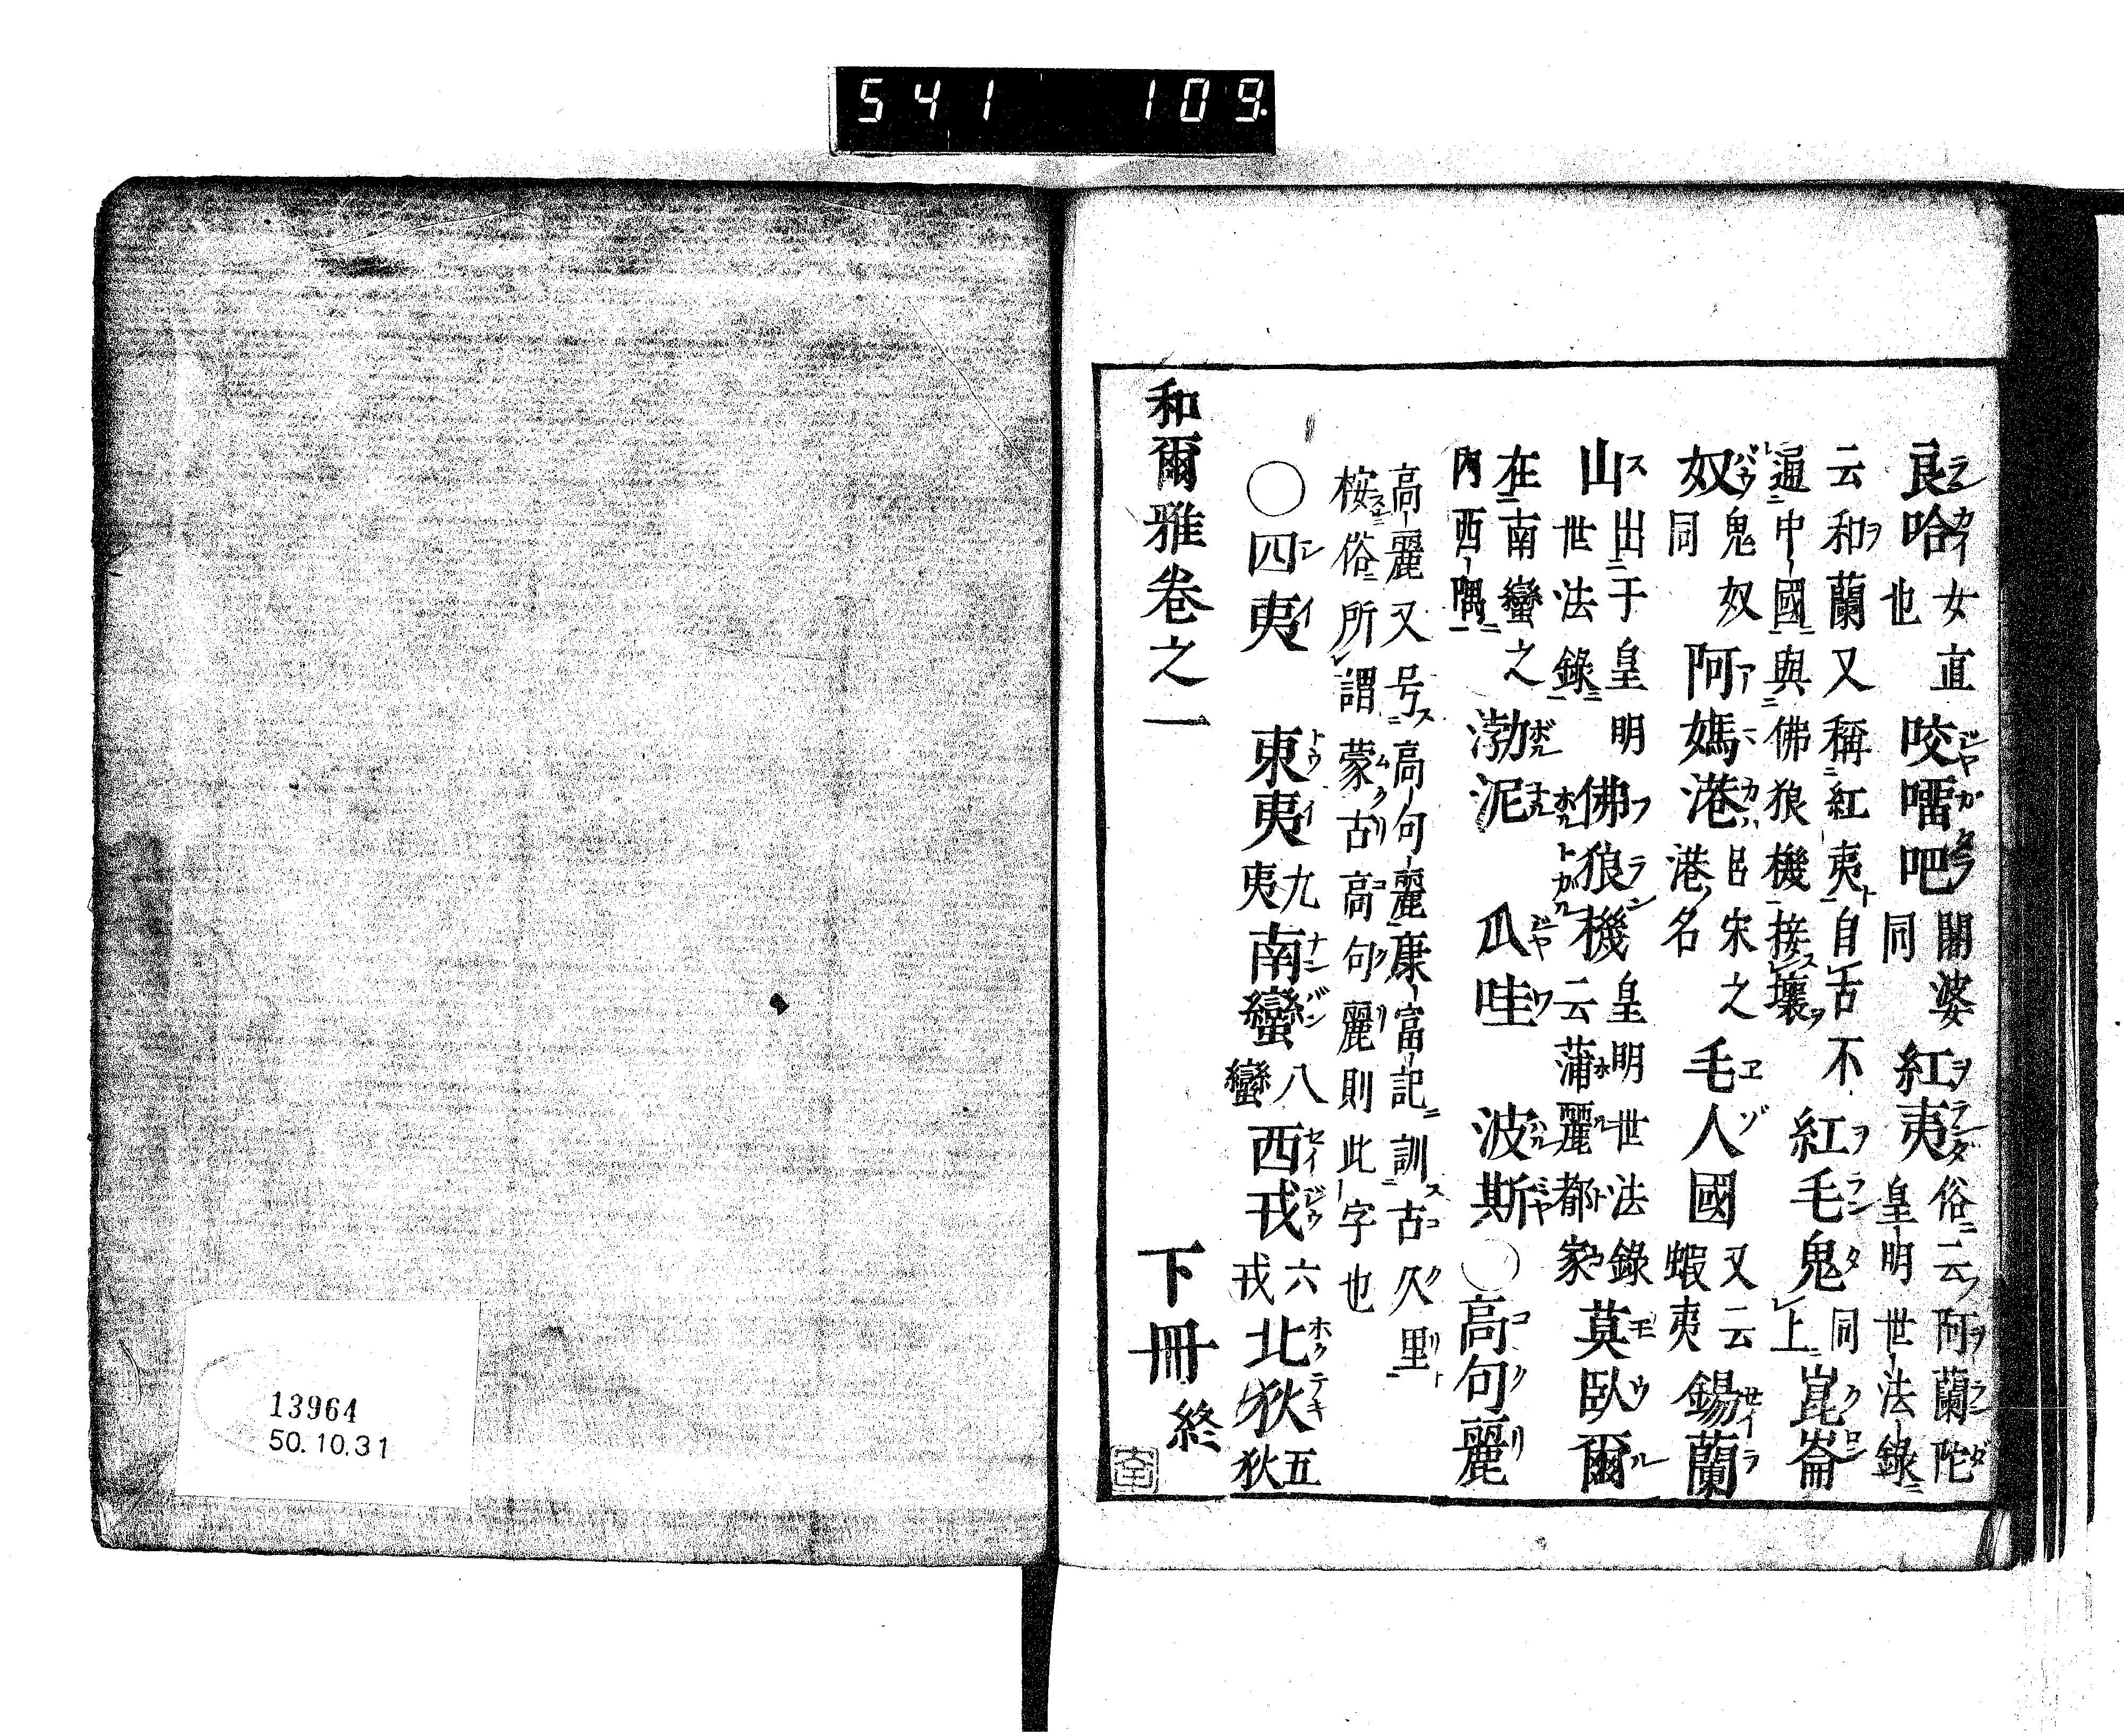 541 109.
良哈 女直也 咬𠺕吧 闍婆同 紅夷 俗云阿蘭陀皇明世法錄
云和蘭又稱紅夷自古不通中國與佛狼機接壤 紅毛鬼 同上 崑崙
奴 鬼奴同 阿媽港 呂宋之港名 毛人國 又云蝦夷 錫蘭
山 出于皇明世法錄 佛狼機 皇明世法錄云蒲麗都家 莫臥爾
在南蠻之內西隅 渤泥 瓜哇 波斯 ○高句麗
高麗又号高句麗康富記訓古久里
桉俗所謂蒙古高句麗則此字也
○四夷 東夷 九夷 南蠻 八蠻 西戎 六戎 北狄 五狄
和爾雅卷之一 下冊終
13964
50.10.31